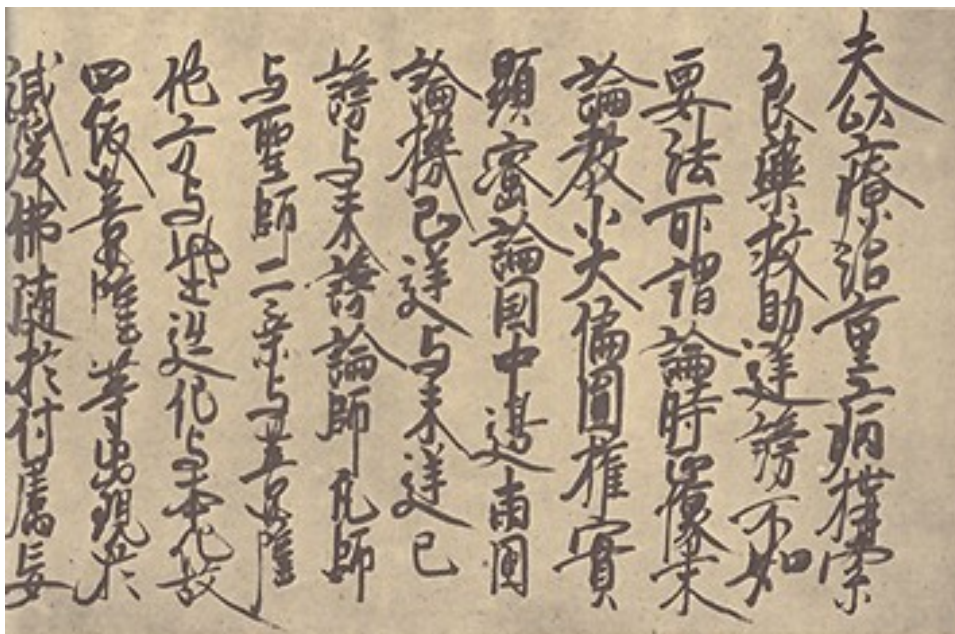 夫以療治重病搆索
良藥救助逆謗不如
要法所謂論時正像末
論教小大偏圓權實
顯密論国中邊両国
論機已逆与未逆已
謗与未謗論師凡師
与聖師二乗与菩薩
他方与此土迹化与本化故
四依菩薩等出現於
滅後佛随於付属妄